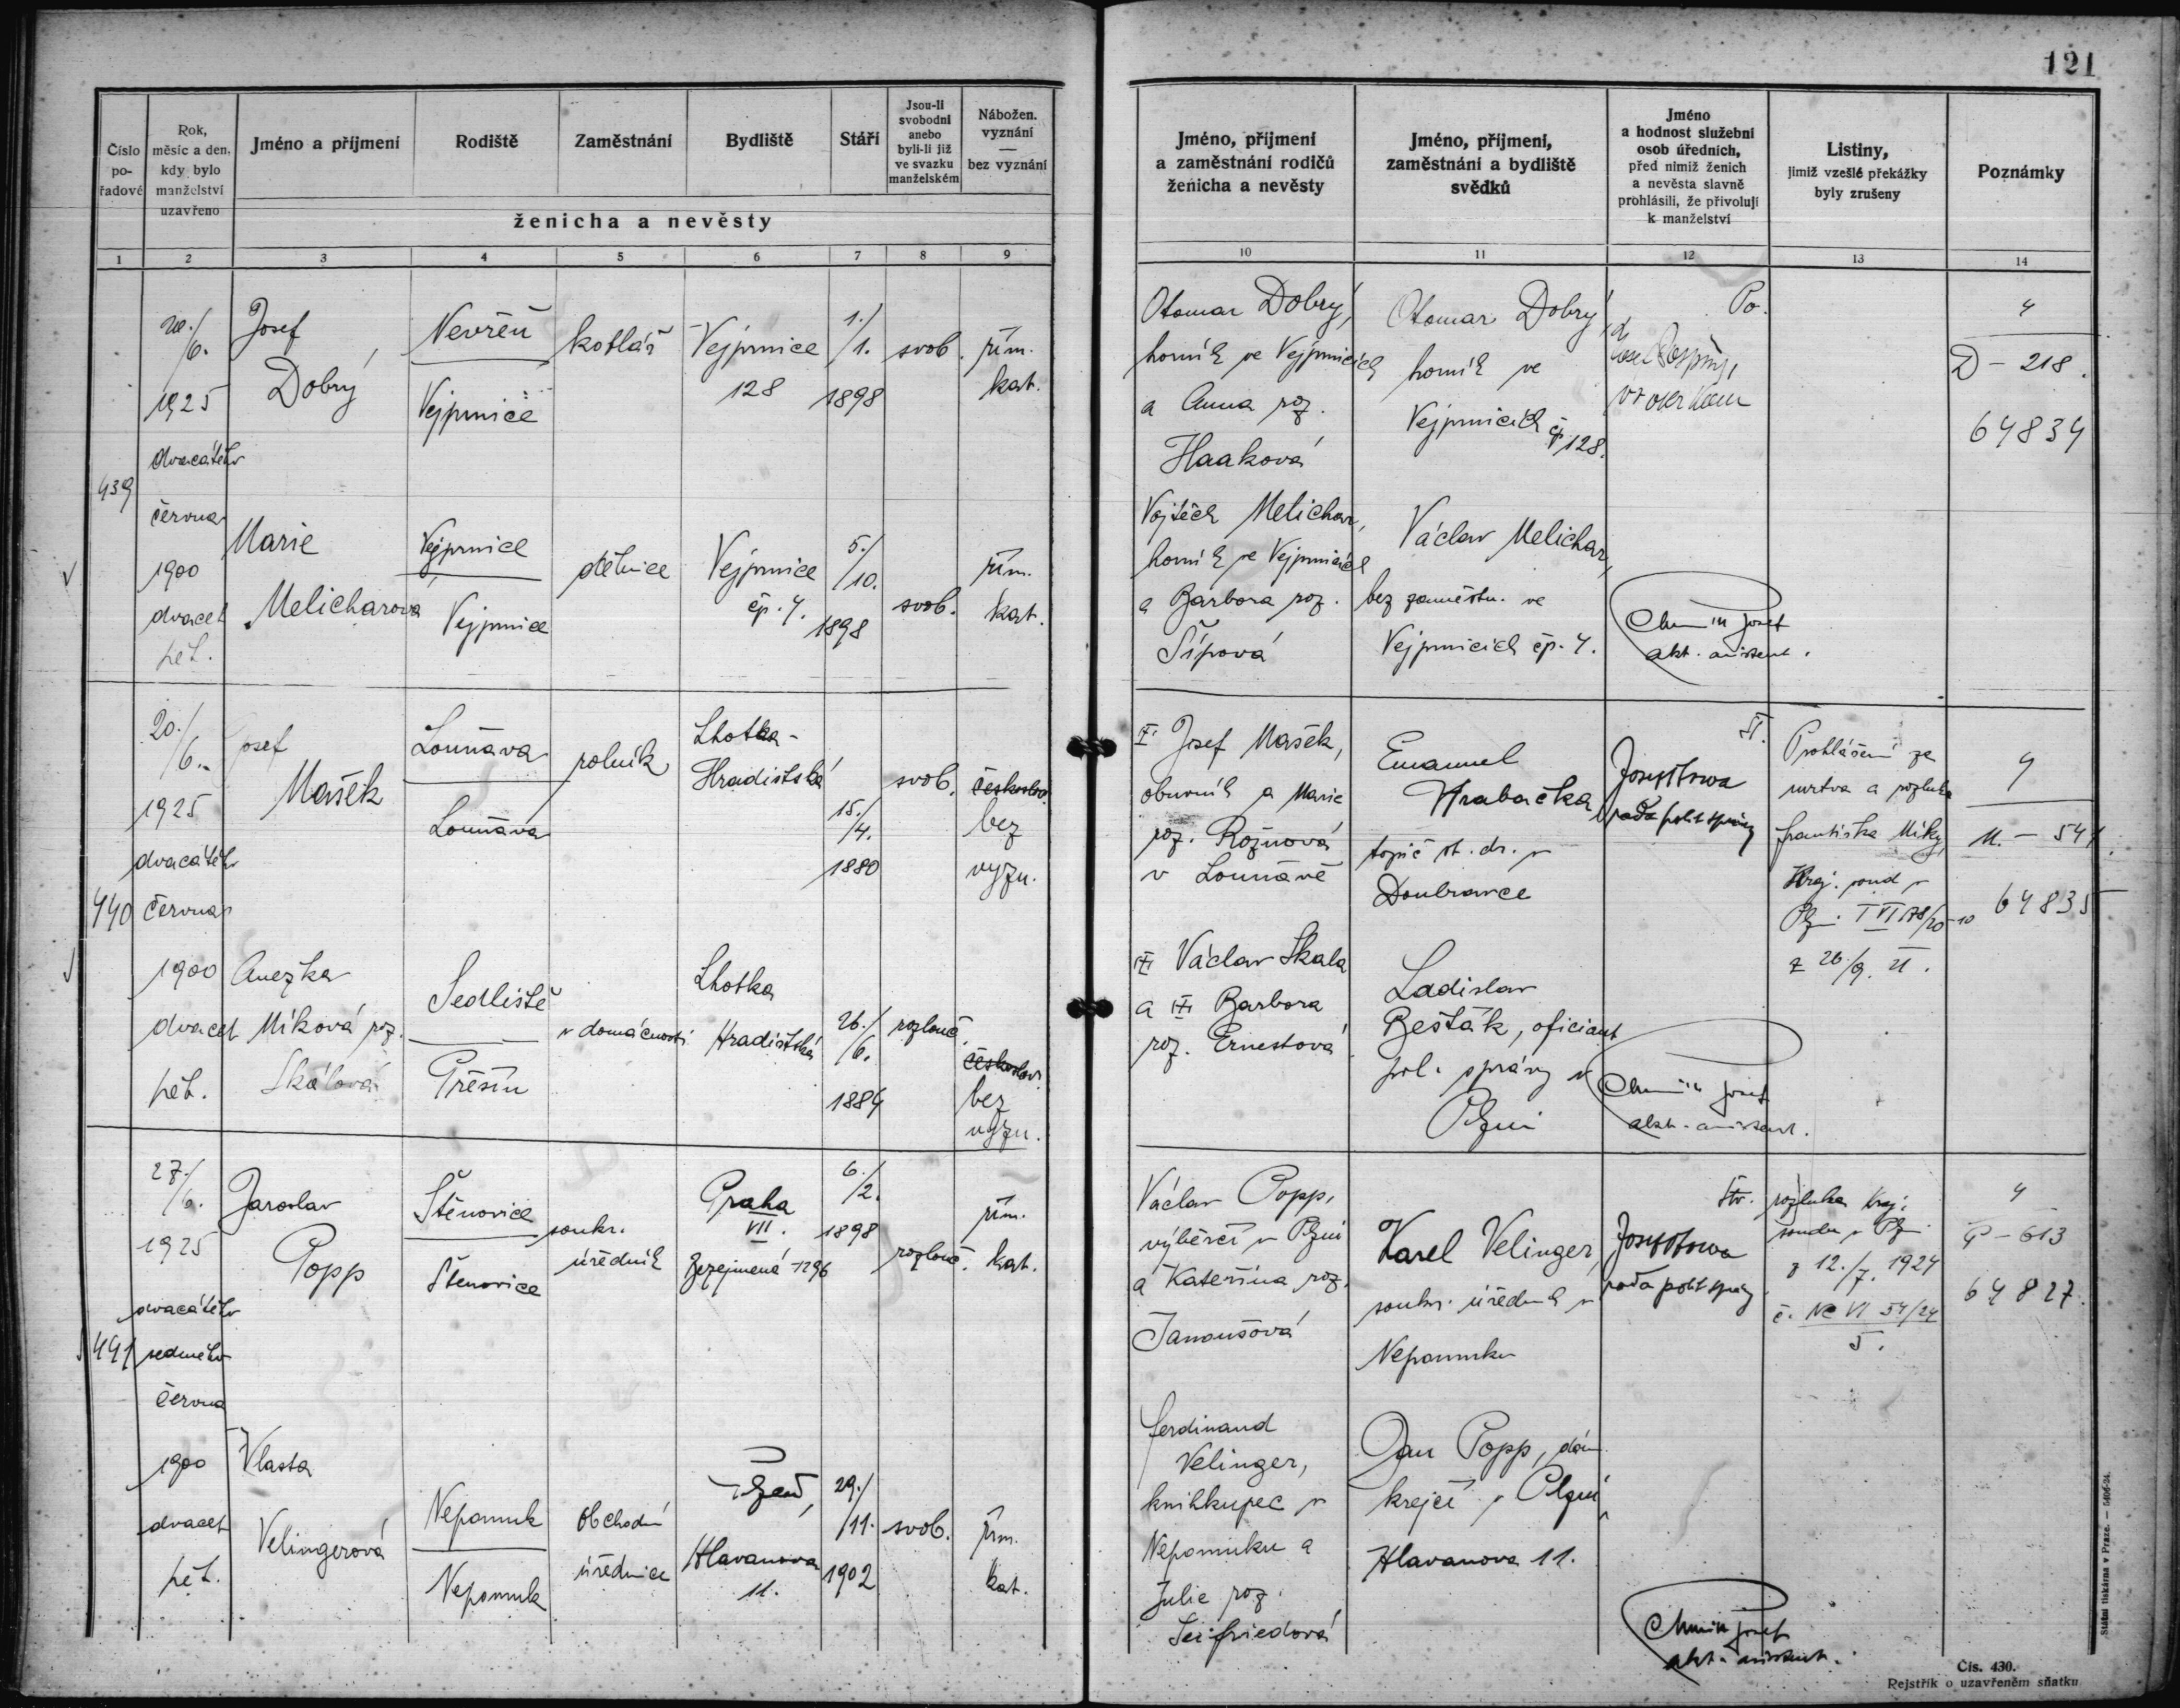 121
Číslo pořadové
Rok, měsíc a den, kdy bylo manželství uzavřeno
Jméno a příjmení
Rodiště
Zaměstnání
Bydliště
Stáří
Jsou-li svobodni anebo byli-li již ve svazku manželském
Nábožen. vyznání — bez vyznání
ženicha a nevěsty
1 2 3 4 5 6 7 8 9
Jméno, příjmení a zaměstnání rodičů ženicha a nevěsty
Jméno, příjmení, zaměstnání a bydliště svědků
Jméno a hodnost služební osob úředních, před nimiž ženich a nevěsta slavně prohlásili, že přivolují k manželství
Listiny, jimiž vzešlé překážky byly zrušeny
Poznámky
10 11 12 13 14
439
20./6.
1925
dvacátého
června
1900
dvacet
pět.
Josef
Dobrý
Nevřeň
Vejprnice
kotlář
Vejprnice
128
1./1.
1898
svob.
řím.
kat.
Marie
Melicharova
Vejprnice
Vejprnice
dělnice
Vejprnice
čp. 4.
5./10.
1898
svob.
řím.
kat.
Otomar Dobrý,
horník ve Vejprnicích
a Anna roz.
Haaková
Vojtěch Melichar,
horník ve Vejprnicích
a Barbora roz.
Šípová
Otomar Dobrý,
horník ve
Vejprnicích čp 128.
Václav Melichar,
bez zaměstn. ve
Vejprnicích čp. 4.
Po.
Josef
akt. asistent.
4
D - 218.
64834
440
20./6.
1925
dvacátého
června
1900
dvacet
pět.
Josef
Mašek
Louňava
Louňava
rolník
Lhotka-
Hradištská
15./4.
1880
svob.
českoslov.
bez
vyzn.
Anežka
Míková roz.
Skálová
Sedliště
Přešín
v domácnosti
Lhotka
Hradištská
26./6.
1884
rozlouč.
českoslov.
bez
vyzn.
Josef Mašek,
obuvník a Marie
roz. Rožnová
v Louňavě
Václav Skala
a Barbora
roz. Ernestová
Emanuel
Hrabačka
topič st. dr. v
Doubravce
Ladislav
Bešťák, oficiant
pol. správy v
Plzni
rada polit správy
Josef
akt. asistent.
Prohlášení za
mrtva a rozluka
Františka Míky,
Kraj. soud v
Plzni T VI 178/20-10
z 26/9. 21.
4
M. - 541.
64835
441
27./6.
1925
dvacátého
sedmého
června
1900
dvacet
pět.
Jaroslav
Popp
Štěnovice
Štěnovice
soukr.
úředník
Praha
VII.
-1296
6./2.
1898
rozlouč.
řím.
kat.
Vlasta
Velingerová
Nepomuk
Nepomuk
obchodní
úřednice
Plzeň,
Hlavanova
11.
29./11.
1902
svob.
řím.
kat.
Václav Popp,
výběrčí v Plzni
a Kateřina roz.
Janoušová
Ferdinand
Velinger,
knihkupec v
Nepomuku a
Julie roz.
Seifriedová
Karel Velinger,
soukr. úředník v
Nepomuku
Jan Popp, dám.
krejčí v Plzni,
Hlavanova 11.
rada polit správy
Josef
akt. asistent.
rozluka kraj.
soudu v Plzni
z 12./7. 1924
č. Nc VI 54/24
5.
4
P - 613
64827.
Státní tiskárna v Praze. — 5406-24.
Čís. 430.
Rejstřík o uzavřeném sňatku